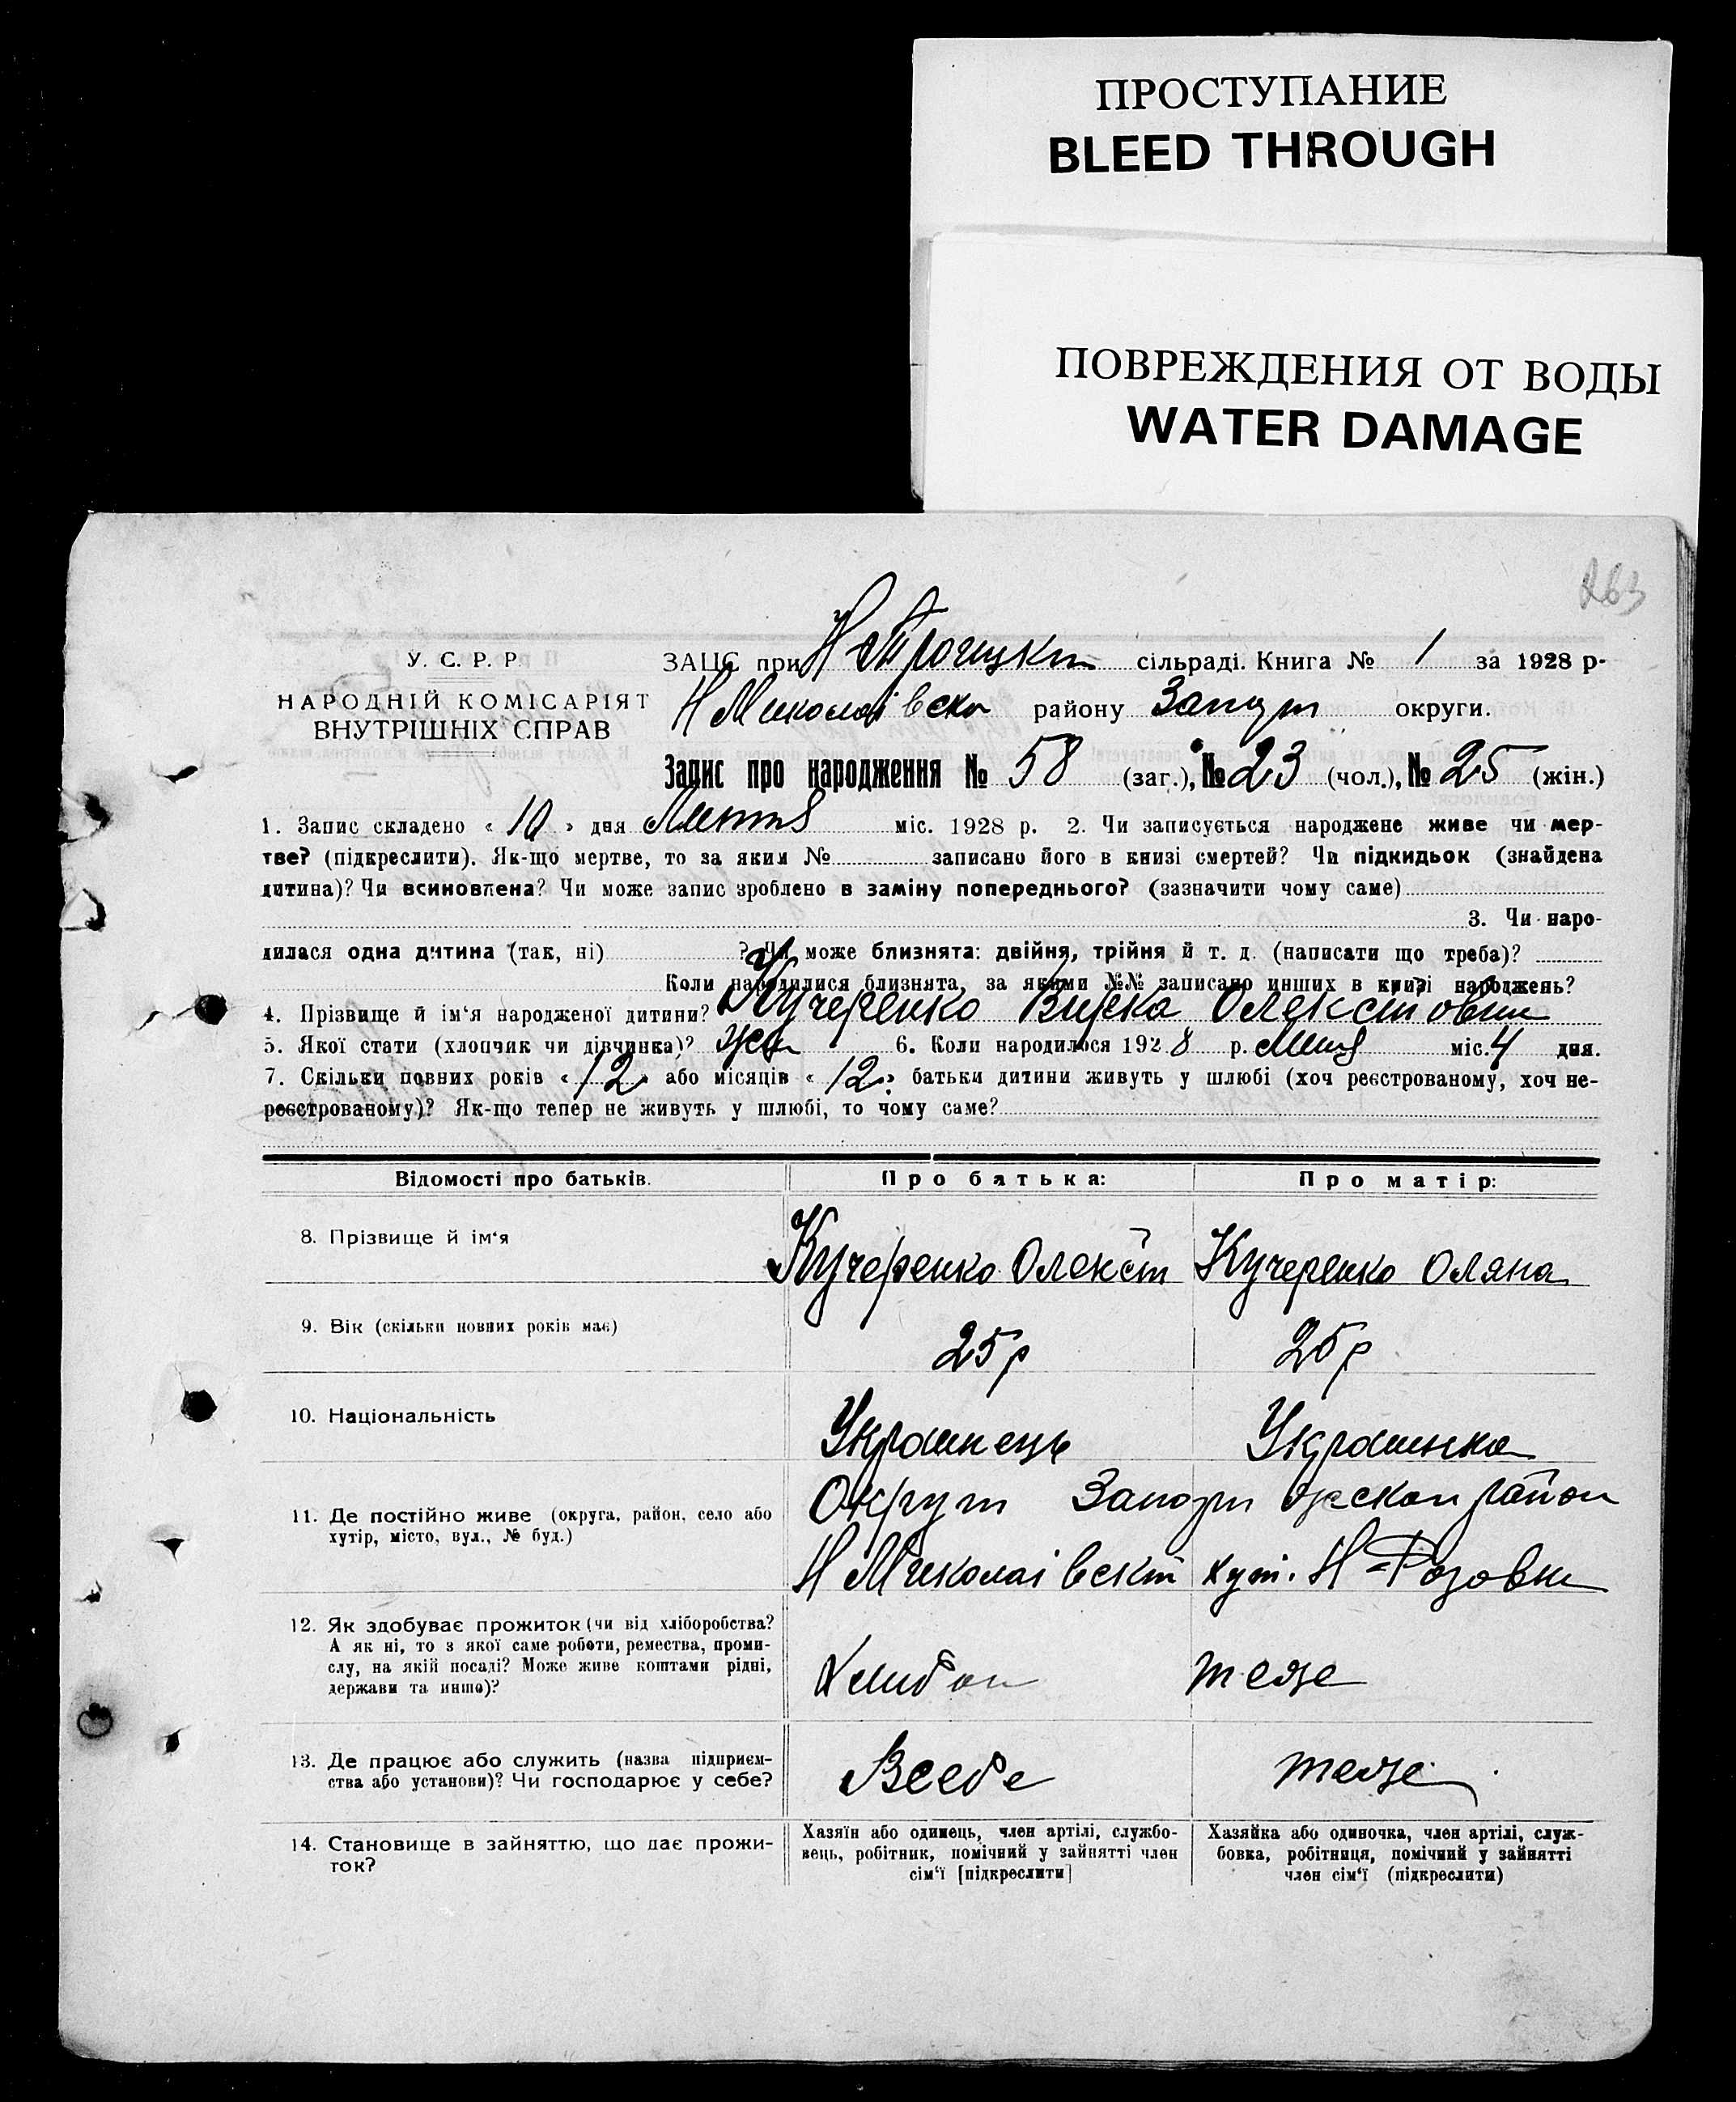 ПРОСТУПАНИЕ
BLEED THROUGH
ПОВРЕЖДЕНИЯ ОТ ВОДЫ
WATER DAMAGE
263
У. С. Р. Р.
НАРОДНІЙ КОМІСАРІЯТ
ВНУТРІШНІХ СПРАВ
ЗАЦС при Н Троицкий сільраді. Книга № 1 за 1928 р.
Н Миколаівско району Запор округи.
Запис про народження № 58 (заг.), № 23 (чол.), № 25 (жін.)
1. Запис складено « 10 » дня міс. 1928 р. 2. Чи записується народжене живе чи мер-
тве? (підкреслити). Як-що мертве, то за яким № записано його в книзі смертей? Чи підкидьок (знайдена
дитина)? Чи всиновлена? Чи може запис зроблено в заміну попереднього? (зазначити чому саме)
3. Чи наро-
дилася одна дитина (так, ні) ? Чи може близнята: двійня, трійня й т. д. (написати що треба)?
Коли народилися близнята, за якими №№ записано инших в книзі народжень?
4. Прізвище й ім'я народженої дитини? Кучеренко Вирка Олексіовна
5. Якої стати (хлопчик чи дівчинка)? жен 6. Коли народилося 1928 р. міс. 4 дня.
7. Скільки повних років « 12 » або місяців « 12 » батьки дитини живуть у шлюбі (хоч реєстрованому, хоч не-
реєстрованому)? Як-що тепер не живуть у шлюбі, то чому саме?
Відомості про батьків. Про батька: Про матір:
8. Прізвище й ім'я Кучеренко Олексій Кучеренко Оляна
9. Вік (скільки повних років має) 25 р 25 р
10. Національність Украинець Украинка
11. Де постійно живе (округа, район, село або Округи Запорижской район
хутір, місто, вул., № буд.) Н Миколаівский хут. Н=Розовки
12. Як здобуває прожиток (чи від хліборобства?
А як ні, то з якої саме роботи, ремества, проми-
слу, на якій посаді? Може живе коштами рідні, тоже
держави та инше)?
13. Де працює або служить (назва підприєм- Всебе тоже
ства або установи)? Чи господарює у себе?
14. Становище в зайняттю, що дає прожи-
ток?
Хазяїн або одинець, член артілі, службо-
вець, робітник, помічний у зайнятті член
сім'ї [підкреслити]
Хазяйка або одиночка, член артілі, служ-
бовка, робітниця, помічний у зайнятті
член сім'ї (підкреслити)